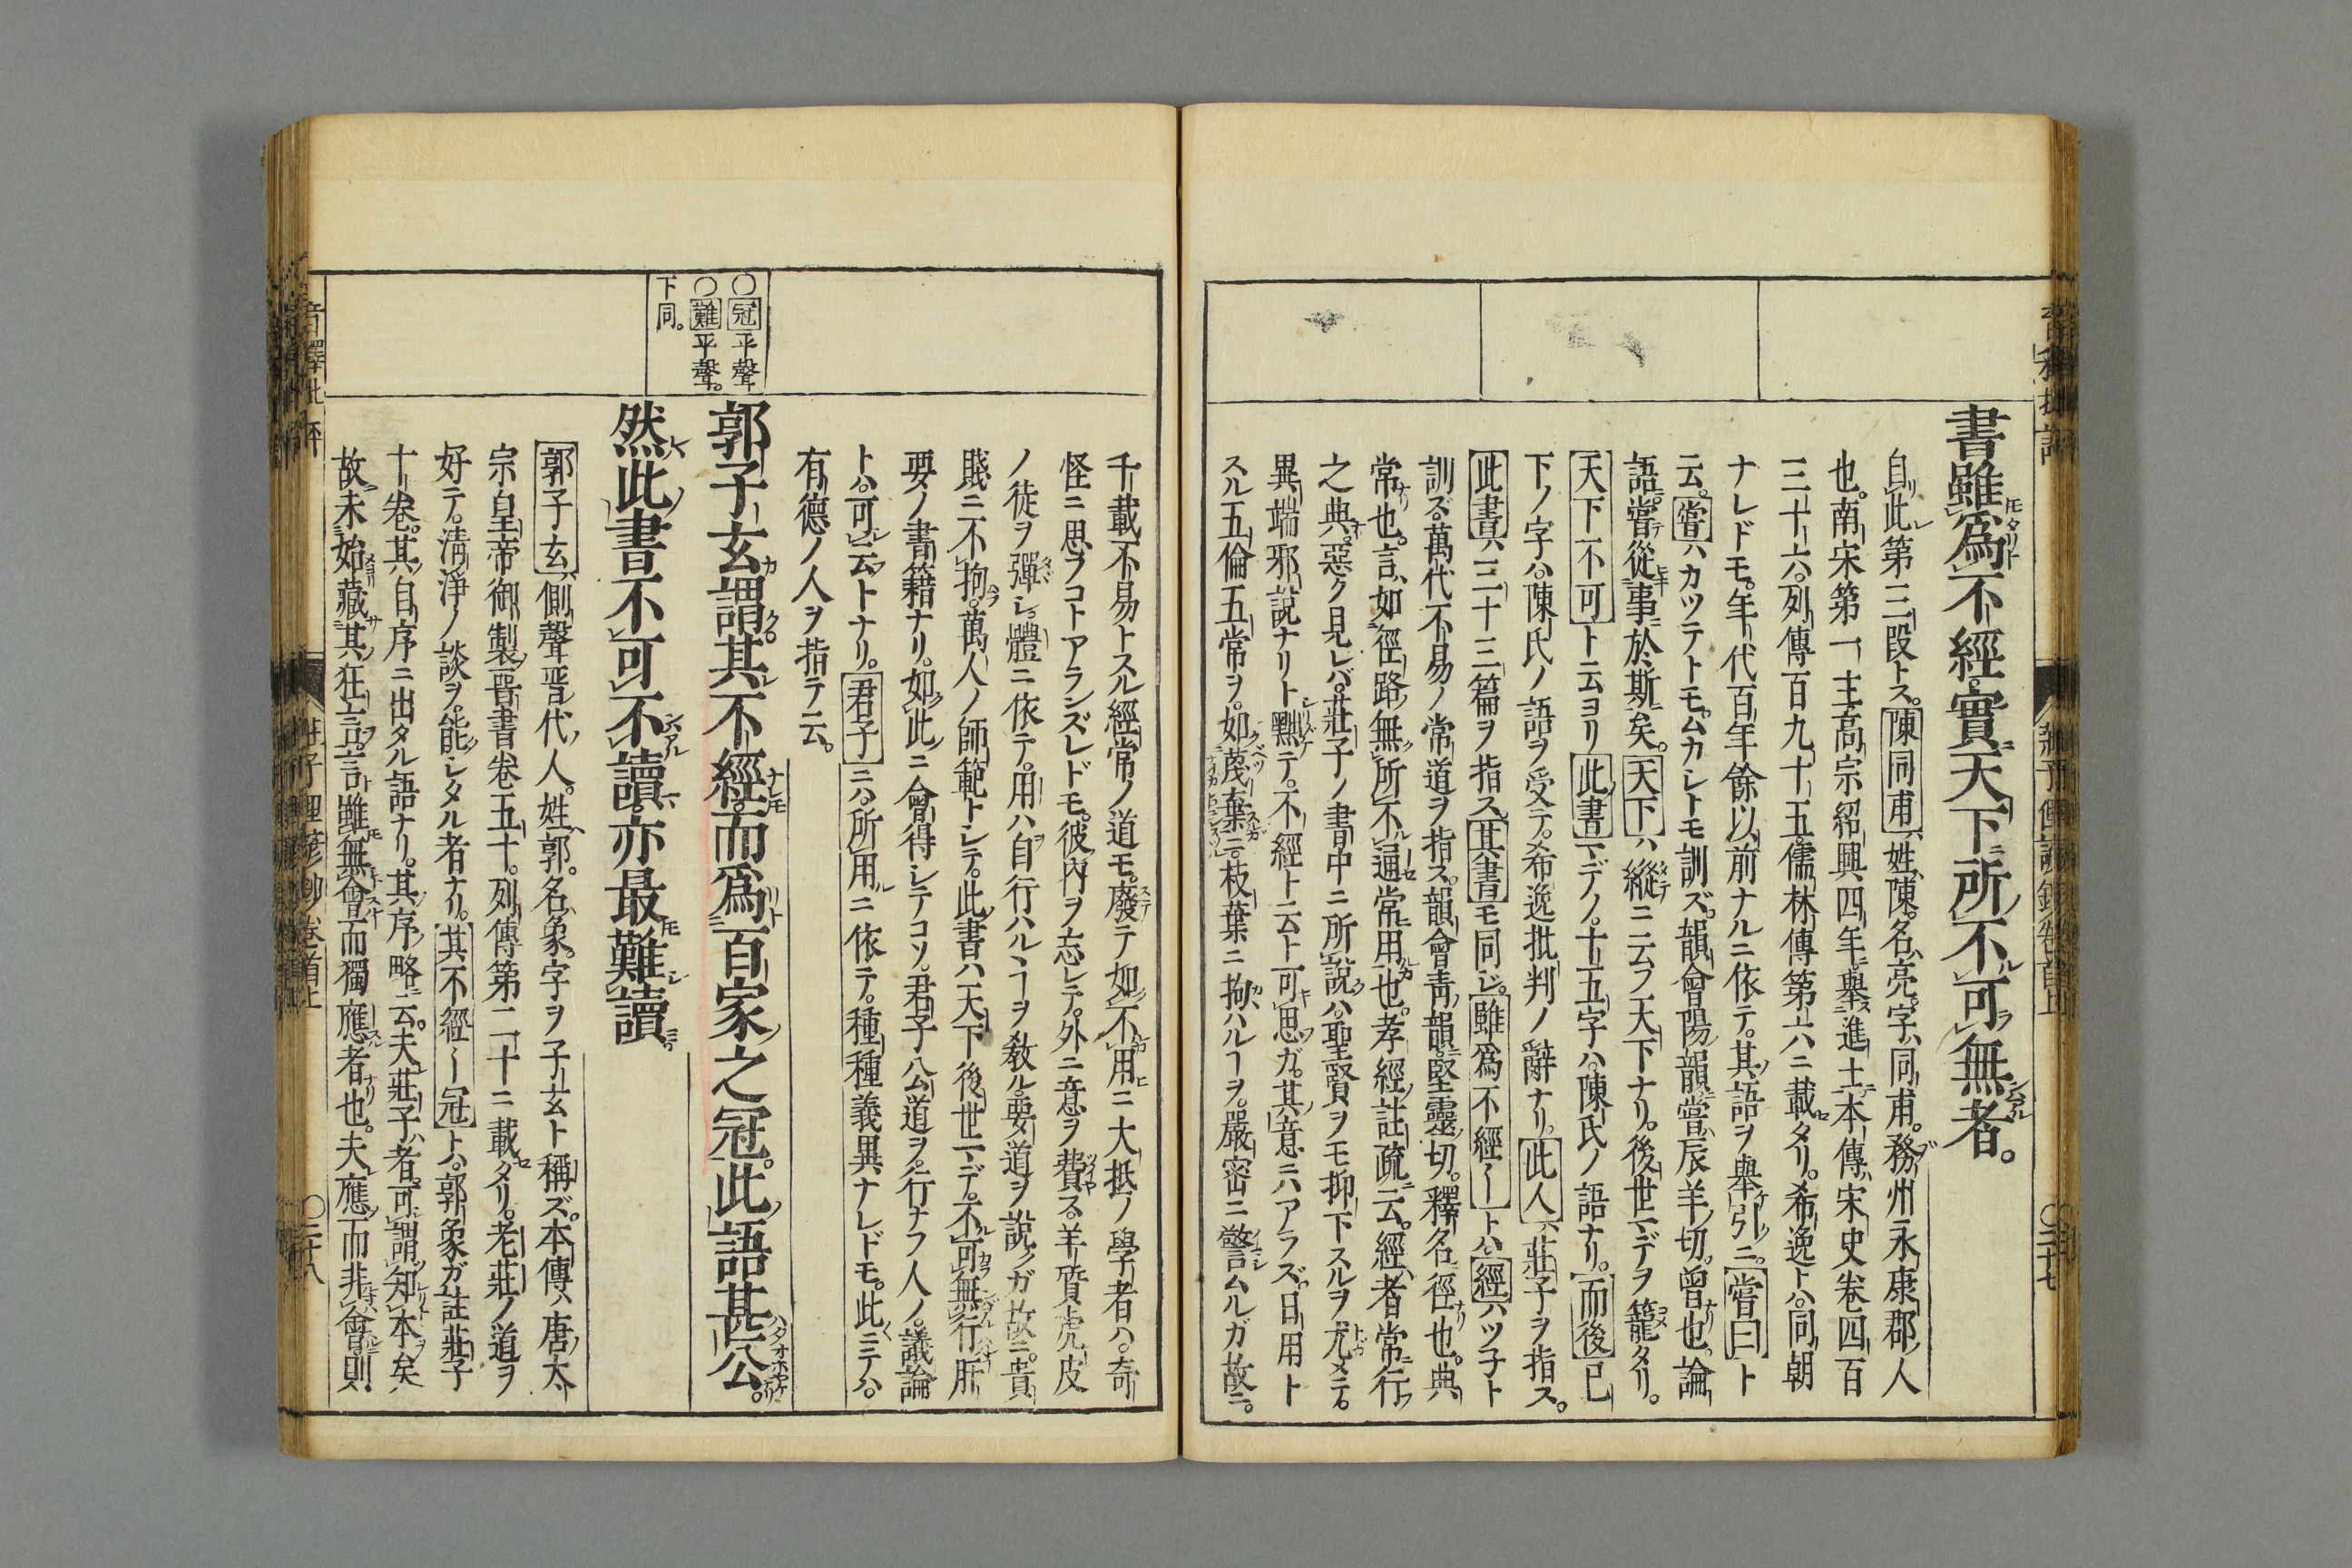 書雖爲不經實天下所不可無者。
自此第三段トス。陳同甫、姓陳。名亮。字同甫。務州永康郡ノ人
也。南宋第一ノ主高宗紹興四年ニ擧進士。本傳宋史卷四百
三十六。列傳百九十五。儒林傳第六ニ載タリ。希逸トハ同朝
ナレドモ。年代百年餘以前ナルニ依テ。其語ヲ擧ゲ引ニ。嘗曰ト
云。嘗ハカツテトモ。ムカシトモ訓ズ。韻會陽韻嘗辰羊切。曾也。論
語嘗從事於斯矣。天下ハ縱ニ云フ天下ナリ。後世マデヲ籠タリ。
天下不可ト云ヨリ此書マデノ。十五字ハ。陳氏ノ語ナリ。而後已
下ノ字ハ。陳氏ノ語ヲ受テ。希逸批判ノ辭ナリ。此人ハ莊子ヲ指ス。
此書ハ三十三篇ヲ指ス。其書モ同ジ。雖爲不經ートハ。經ハツ子ト
訓ズ。萬代不易ノ常道ヲ指ス。韻會靑韻。堅靈切。釋名。徑也。典
常也。言如徑路無所不通常用也。孝經註疏云。經者常行
之典。惡ク見レバ。莊子ノ書中ニ所說ハ。聖賢ヲモ抑下スルヲ尤メテ。
異端邪說ナリト黜テ。不經ト云ト可思ガ。其意ニハアラズ。日用ト
スル五倫五常ヲ。如蔑棄ニ。枝葉ニ拘ハルヿヲ。嚴密ニ警ムルガ故ニ。
千載不易トスル經常ノ道モ。廢テ如不用ニ大抵ノ學者ハ。奇
怪ニ思フコトアランズレドモ。彼內ヲ忘レテ。外ニ意ヲ費ス。羊質虎皮
ノ徒ヲ彈シ。體ニ依テ。用ハ自行ハルヽヿヲ敎ル要道ヲ說クガ故ニ。貴
賤ニ不拘。萬人ノ師範トシテ。此書ハ天下後世マデ。不可無行所
要ノ書籍ナリ。如此ニ會得シテコソ。君子ハ公道ヲ行ナフ人ノ。議論
トハ。可云トナリ。君子ニハ。所用ニ依テ。種種義異ナレドモ。此ニテハ。
有德ノ人ヲ指テ云。
○冠平聲
○難平聲。
下同。
郭子玄謂其不經而爲百家之冠。此語甚公。
然此書不可不讀。亦最難讀。
郭子玄、側聲晋代ノ人。姓郭。名象。字ヲ子玄ト稱ズ。本傳ハ唐太
宗皇帝御製晋書卷五十。列傳第二十ニ載タリ。老莊ノ道ヲ
好テ。淸淨ノ談ヲ。能シタル者ナリ。其不經ー冠トハ。郭象ガ註莊子
十卷。其自序ニ出タル語ナリ。其序ノ略云。夫莊子者。可謂知本矣
故未始藏其狂言。言雖無會而獨應者也。夫應而非會則
莊子俚諺鈔卷首上
○二十七
○二十八